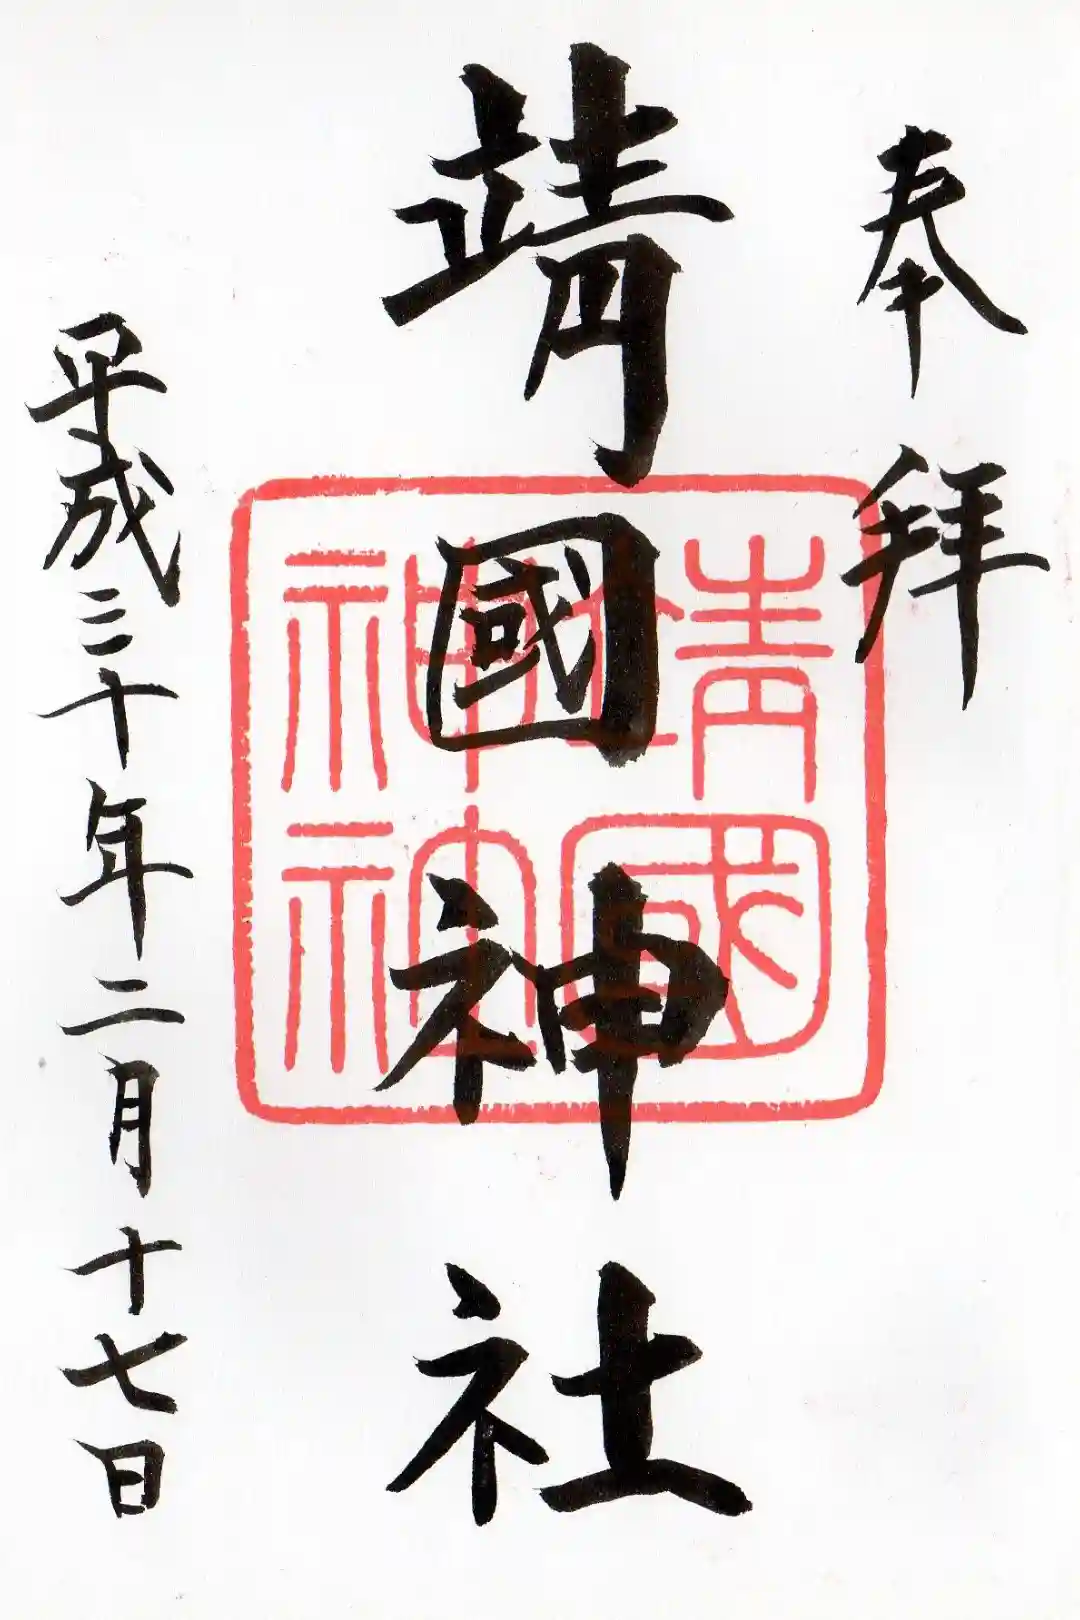 奉拝
靖國神社
靖國神社
平成三十年二月十七日